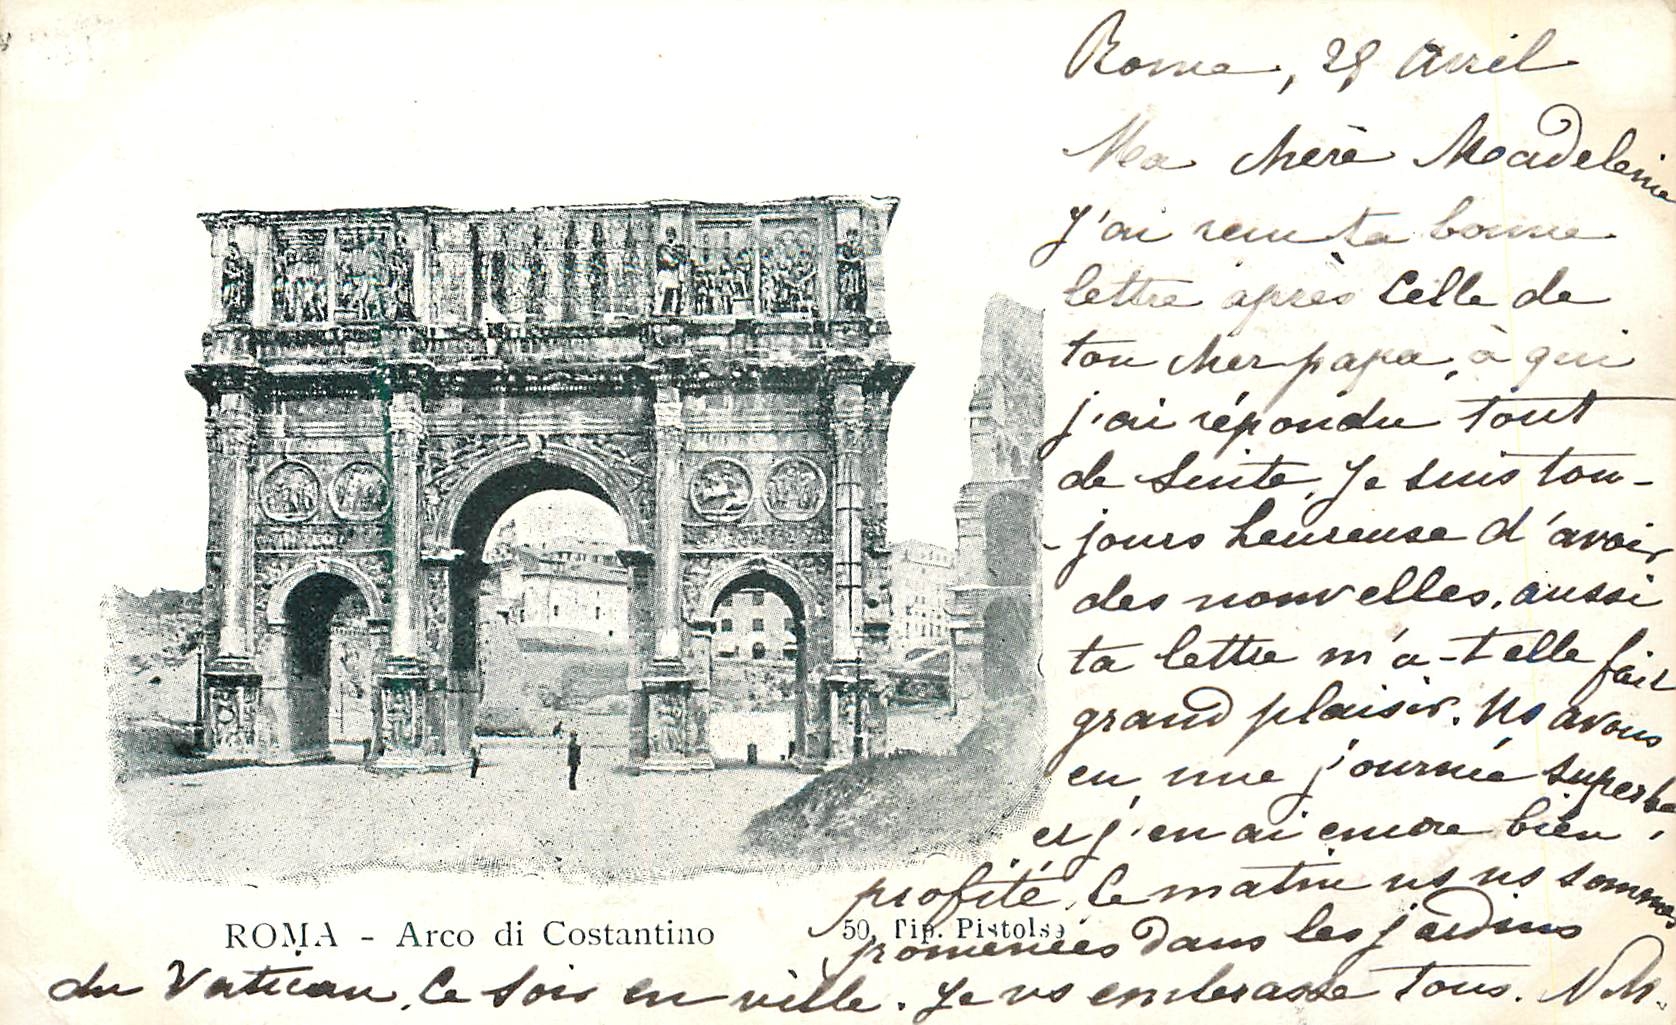 Rome, 28 Avril
Ma chère Madeleine
J'ai reçu ta bonne
lettre après celle de
ton cher papa, à qui
j'ai répondu tout
de suite, Je suis tou-
-jours heureuse d'avoir
des nouvelles, aussi
ta lettre m'a-t elle fait
grand plaisir. Ns avons
eu une journée superbe
et j'en ai encore bien
profité, le matin ns ns sommes
promenées dans les jardins
du Vatican, le soir en ville. Je vs embrasse tous. N M.
ROMA - Arco di Costantino
50, Tip. Pistolesi